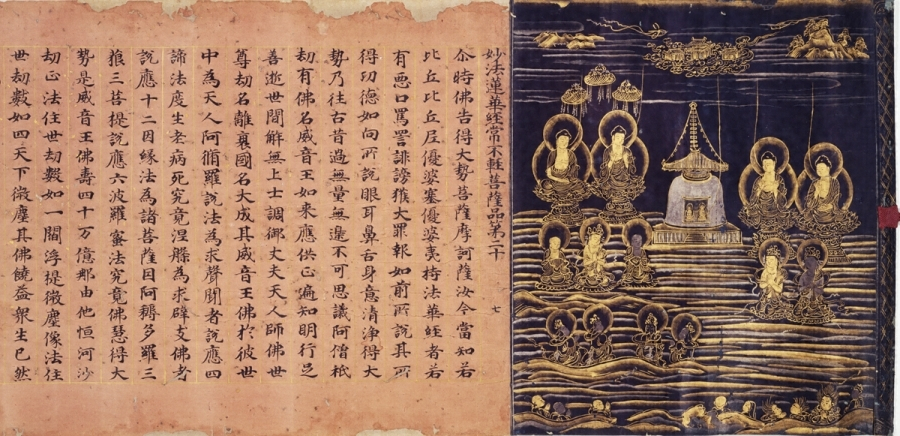 妙法蓮華經常不輕菩薩品第二十
七
尒時佛告得大勢菩薩摩訶薩汝今當知若
比丘比丘尼優婆塞優婆夷持法華經者若
有惡口罵詈誹謗獲大罪報如前所說其所
得功德如向所說眼耳鼻舌身意清淨得大
勢乃往古昔過無量無邊不可思議阿僧祇
劫有佛名威音王如來應供正遍知明行足
善逝世間解無上士調御丈夫天人師佛世
尊劫名離衰國名大成其威音王佛於彼世
中為天人阿脩羅說法為求聲聞者說應四
諦法度生老病死究竟涅槃為求辟支佛者
說應十二因緣法為諸菩薩因阿耨多羅三
藐三菩提說應六波羅蜜法究竟佛慧得大
勢是威音王佛壽四十万億那由他恒河沙
劫正法住世劫數如一閻浮提微塵像法住
世劫數如四天下微塵其佛饒益衆生已然